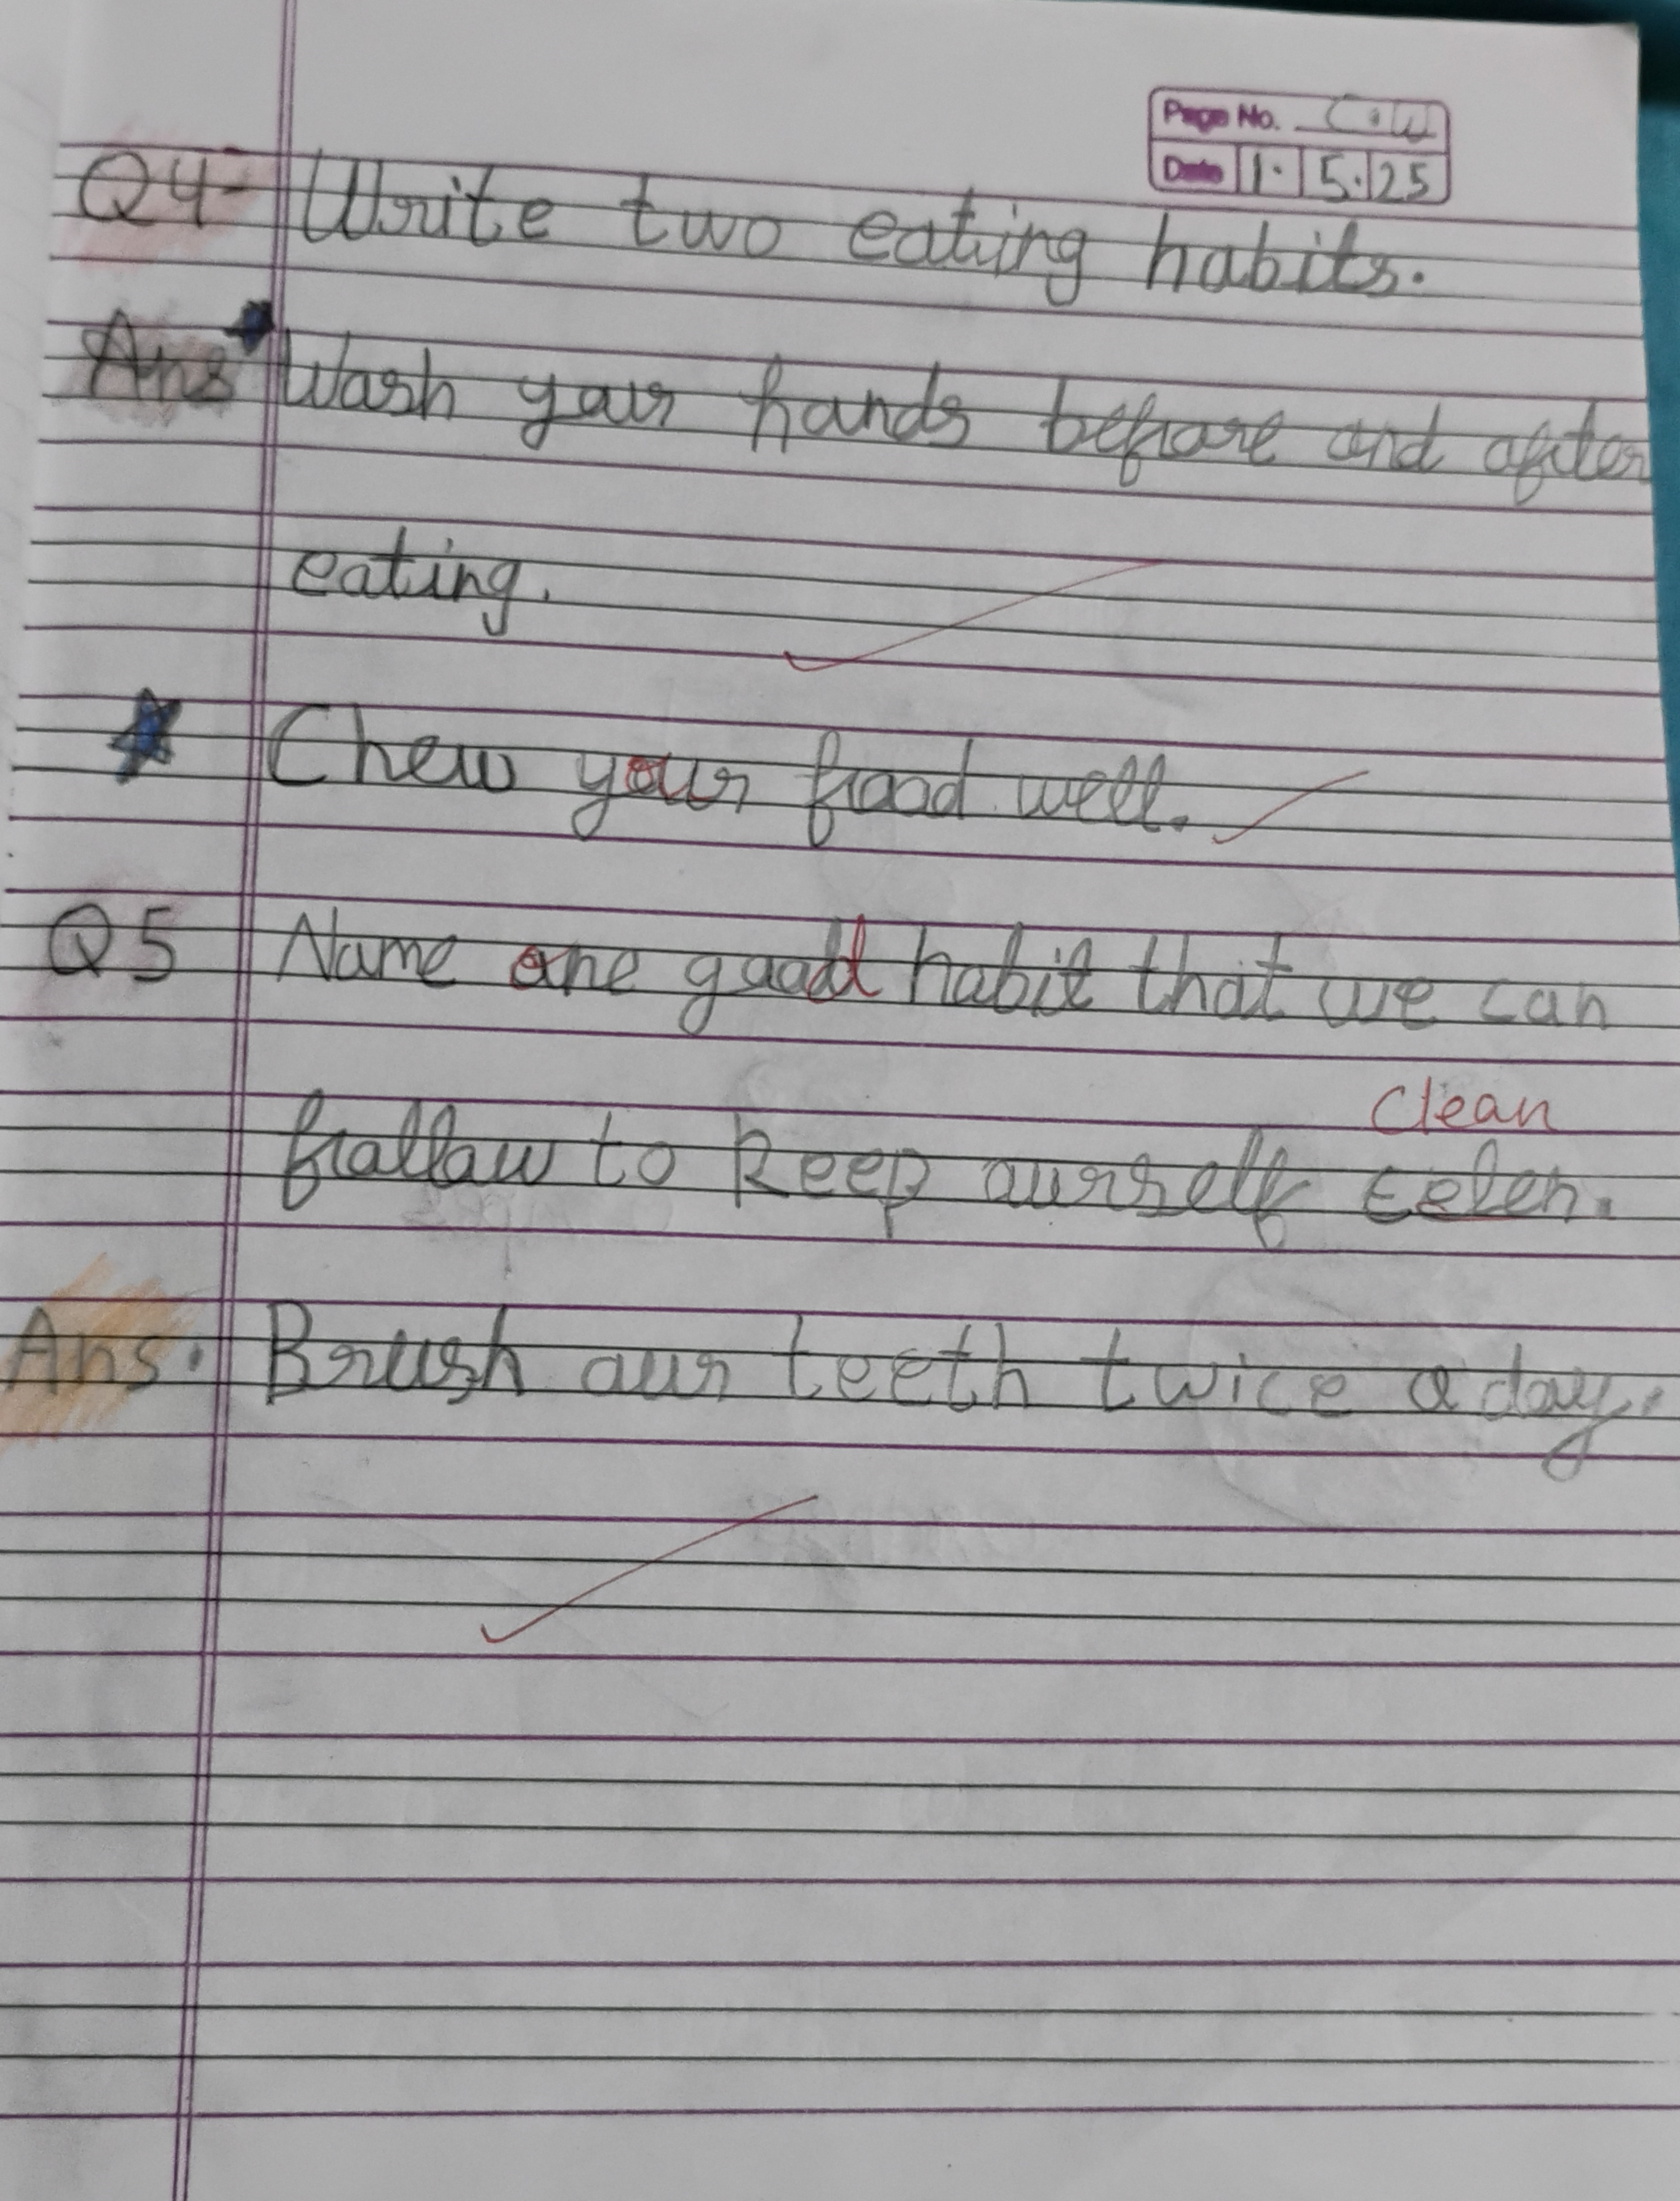 Page No. C.W
Date 1. 5. 25
Q4- Write two eating habits.
Ans Wash your hands before and after
eating.
Chew your food well.
Q5 Name one good habit that we can
Clean
follow to keep ourself celen.
Ans. Brush our teeth twice a day.